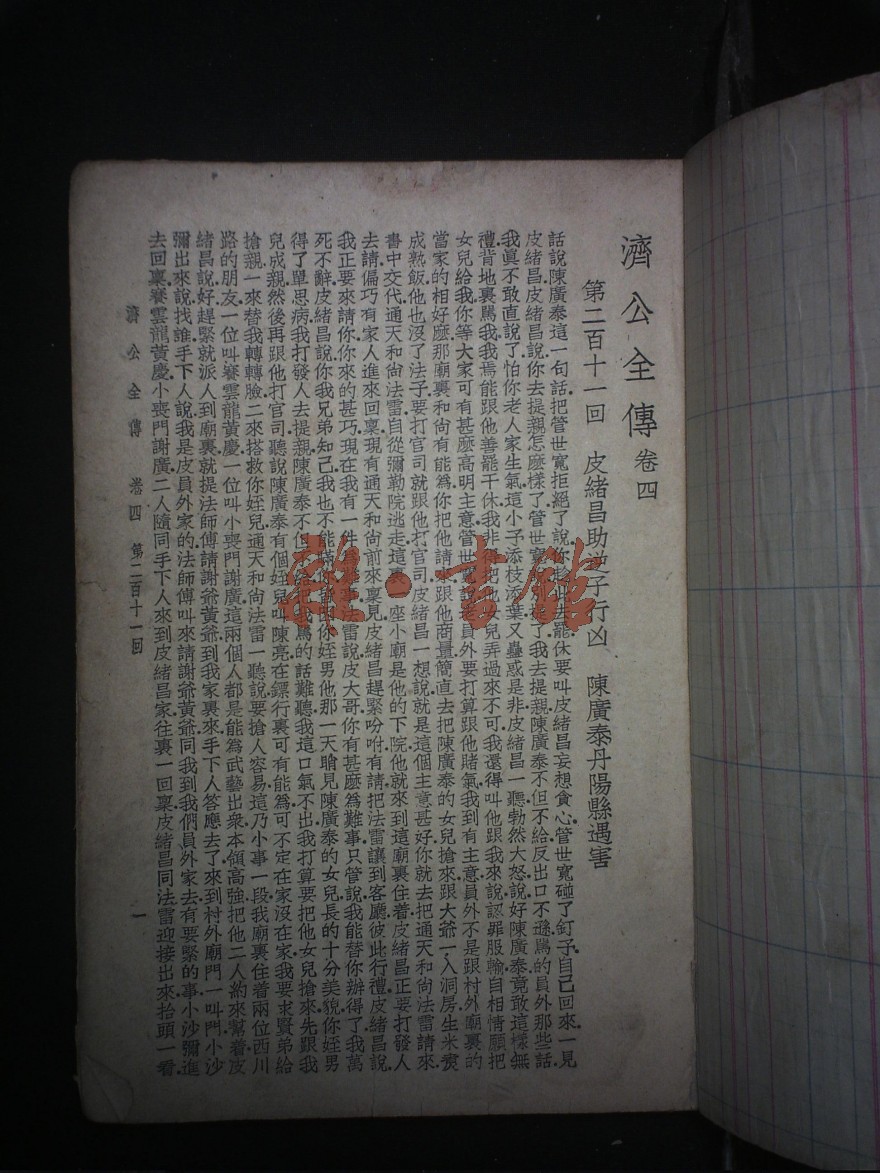 濟公全傳 卷四
第二百十一回 皮緒昌助 子行凶 陳廣泰丹陽縣遇害
話說陳廣泰這一句話.把管世寬拒絕了說.你 出去罷休要叫皮緒昌妄想貪心.管世寬碰了釘子.自己回來.一見
皮緒昌.皮緒昌說.你去提親怎麼樣了.管世寬 了.我去提親.陳廣泰不但不給.反出口不遜.罵的員外那些話.
我眞不敢直說了.怕你老人家生氣.這小子添枝添葉.又蠱惑是非.皮緒昌一聽.勃然大怒.說好陳廣泰.竟敢這樣無
禮.背地裏罵我.我焉能跟他善罷干休.我非 把他女兒弄過來不可.我還得叫他跟我來說.認罪服輸.自相情願把
女兒給我.你等大家可有甚麼高明主意.管世寬說.員外要打算跟他賭氣.我到有主意.員外不是跟村外廟裏的
當家的相好麼.那廟裏和尚有能爲.你把他請 跟他商量.簡直去把陳廣泰的女兒搶來.跟大爺一入洞房.生米煑
成熟飯.他也沒了法子.要打官司.就跟他打官司.皮緒昌一想.說就是這個主意甚好.你就去把通天和尚法雷請來.
書中交代.通天和尚法雷自從彌勒院逃走.這裏 座小廟是他的下院.他就來到這廟裏住着.皮緒昌正要打發人
去請.偏巧有家人進來回稟.現有通天和尚前來稟見.皮緒昌趕緊吩咐有請.把法雷讓到客廳.彼此行禮.皮緒昌說.
我正要來請你.你來的甚巧.現在我有一件 法雷說.皮大哥你有甚麼爲難事.只管說.我能替你辦得了.我萬
死不辭.皮緒昌說.你我兄弟知己.我也不能瞞你. 因你姪男他那一天瞧見陳廣泰的女兒.長的十分美貌.你姪男
得了單思病.我打發人去提親.陳廣泰不但不 罵的話難聽.我這口氣不出.我打算要把他女兒搶來.先跟我
兒成親.然後再跟他打官司.聽說陳廣泰有個姪兒叫陳亮.在鏢行裏.可有能爲.可不定在家沒在家.我要求賢弟給
搶親.一來替我轉轉臉.二來搭救你姪兒.通天和尚法雷一聽.說要搶人容易.這乃小事一段.我廟裏住着兩位西川
路的朋友.一位叫賽雲龍黃慶.一位叫小喪門謝廣.這兩個人都是能爲武藝出衆.本領高強.把他二人約來幫着皮
緒昌說好.趕緊就派人到廟裏.就提法師傅請謝爺黃爺到我家裏來.手下人答應去了.來到村外廟門一叫門.小沙
彌出來說.找誰.手下人說.我是皮員外家的.法師傅叫來請謝爺黃爺.同我到我們員外家去.有要緊的事.小沙彌進
去回稟.賽雲龍黃慶.小喪門謝廣.二人隨同手下人來到皮緒昌家.往裏一回稟.皮緒昌同法雷迎接出來.抬頭一看.
濟公全傳 卷四 第二百十一回 一